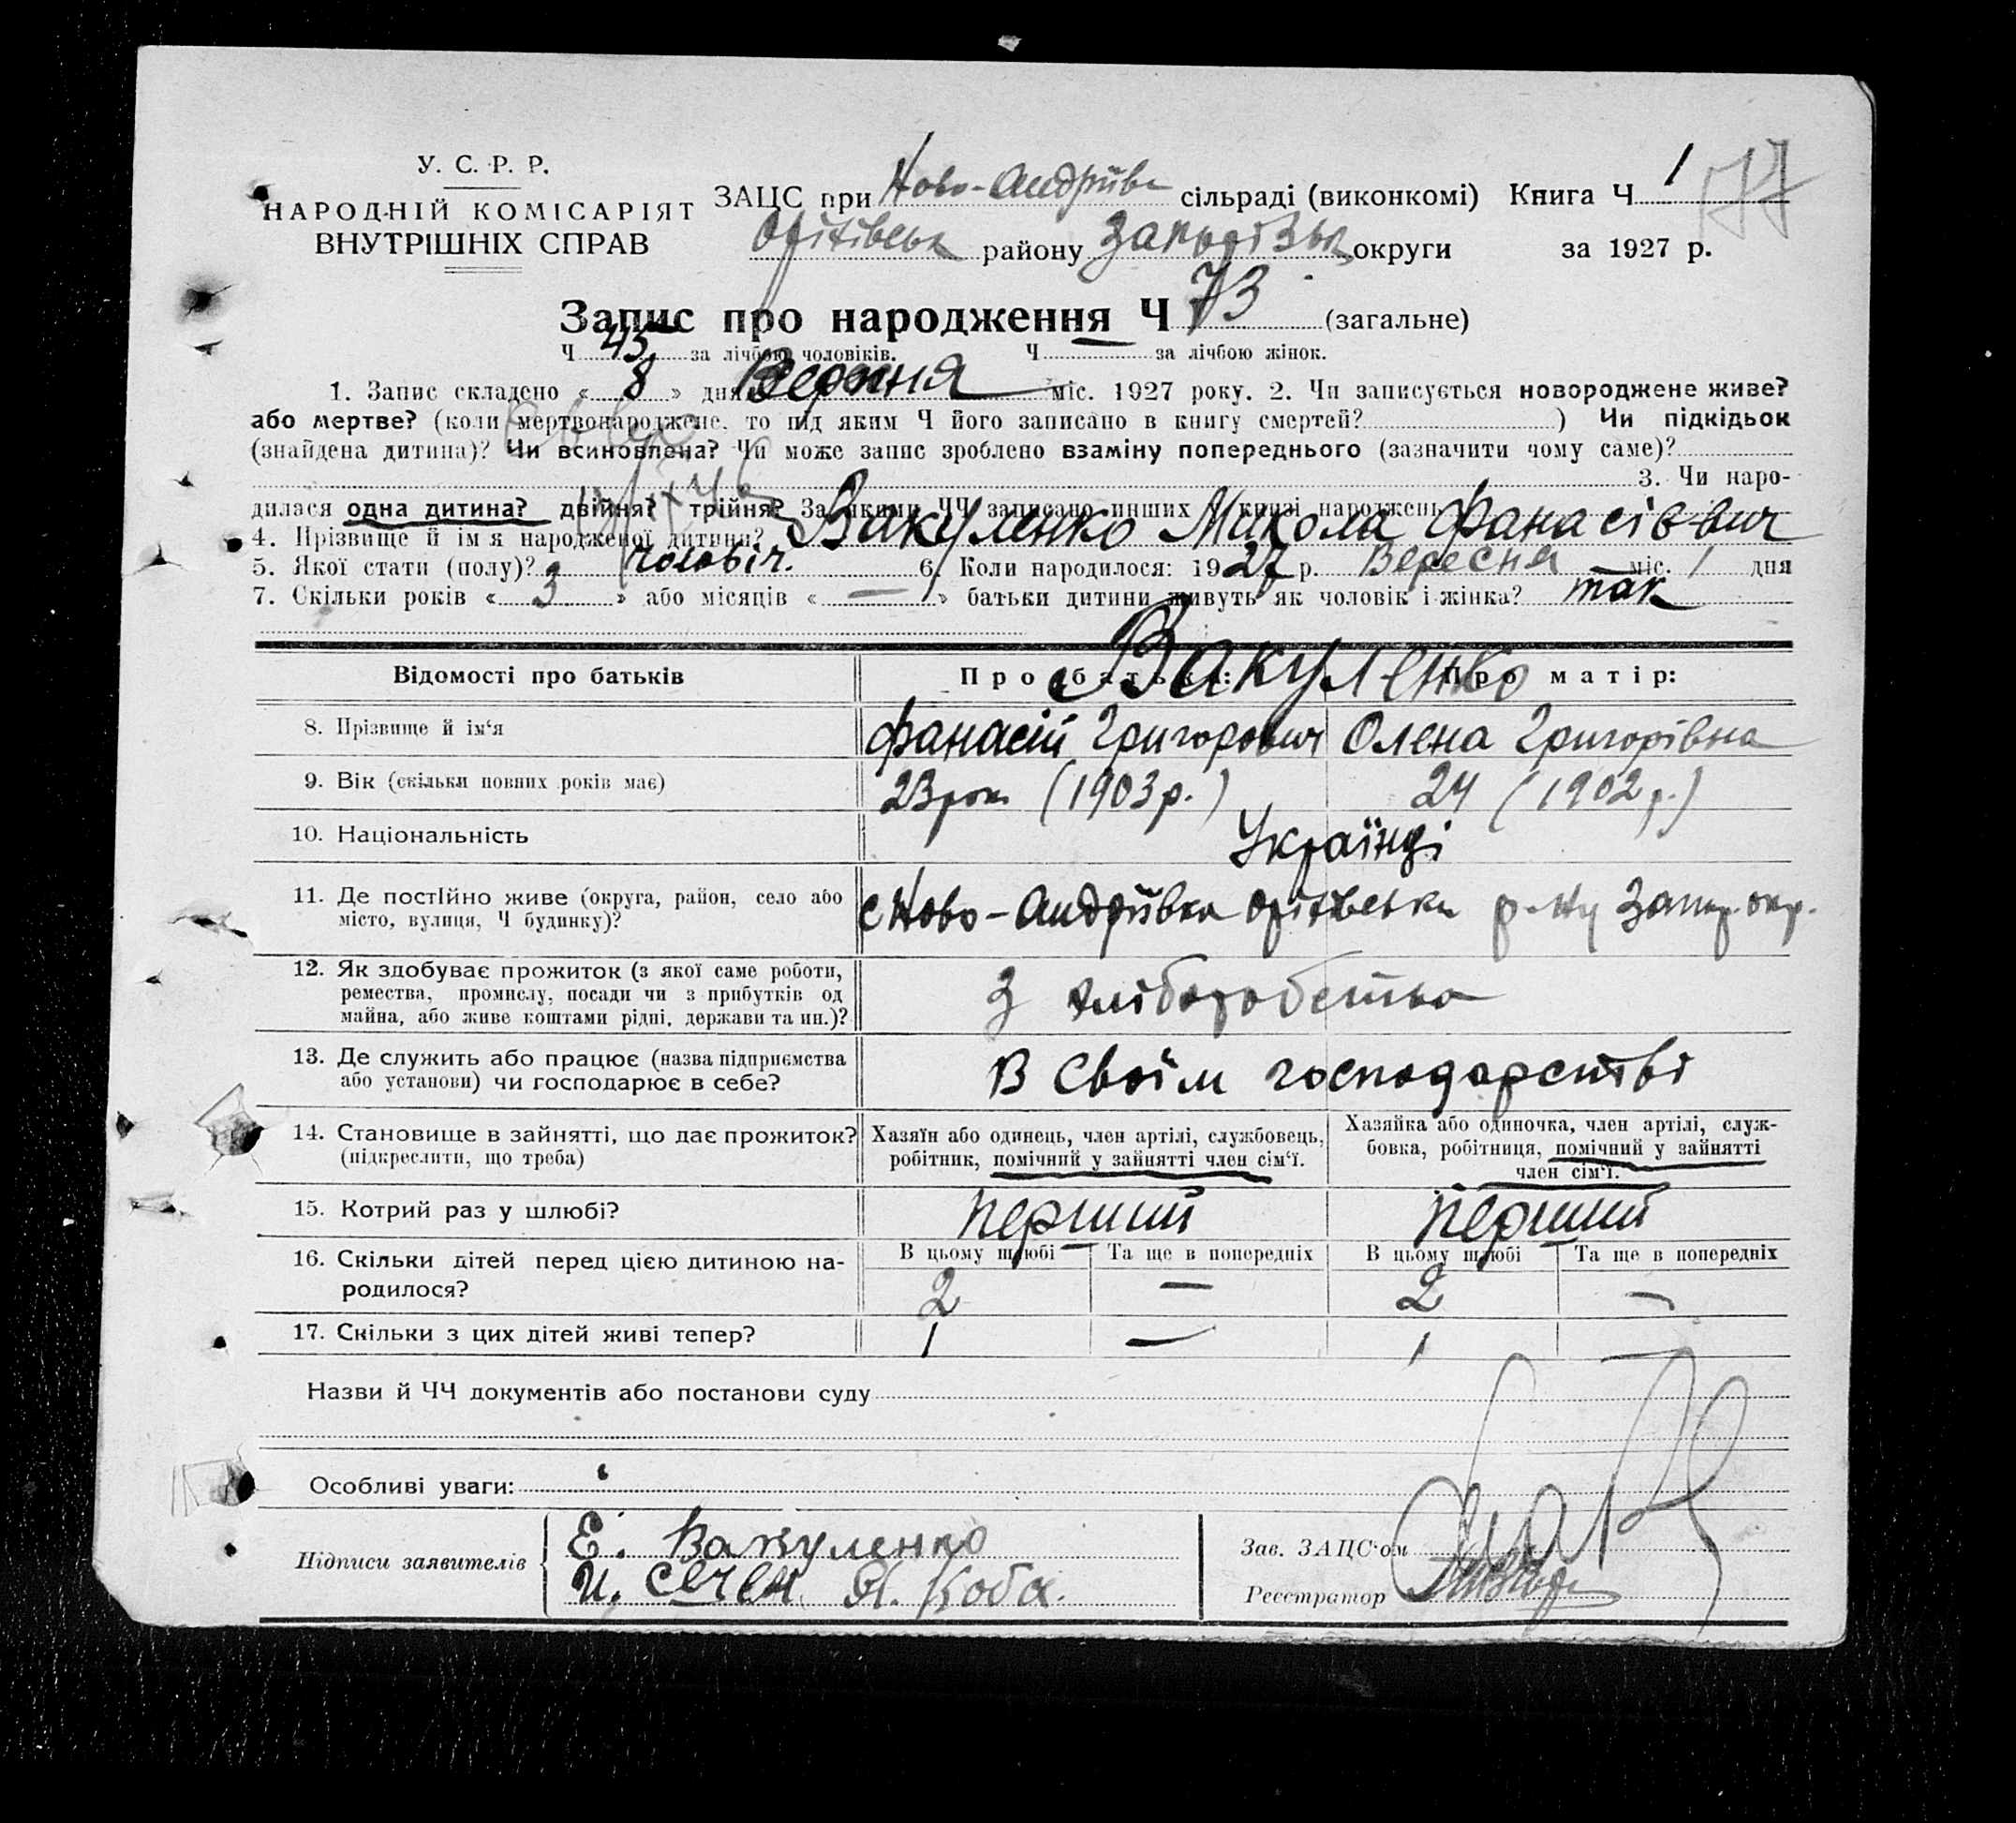 У. С. Р. Р.
НАРОДНІЙ КОМІСАРІЯТ
ВНУТРІШНІХ СПРАВ
ЗАЦС при Ново-Андріївс сільраді (виконкомі) Книга Ч 1 177
Оріхівськ району Запорізьк округи за 1927 р.
Запис про народження Ч 73 (загальне)
Ч 45 за лічбою чоловіків. Ч — за лічбою жінок.
1. Запис складено « 8 » дня Верстня міс. 1927 року. 2. Чи записується новороджене живе?
або мертве? (коли мертвонароджене, то під яким Ч його записано в книгу смертей? ) Чи підкідьок
(знайдена дитина)? Чи всиновлена? Чи може запис зроблено взаміну попереднього (зазначити чому саме)?
3. Чи наро-
дилася одна дитина? двійня? трійня? За якими ЧЧ записано инших у книзі народжень
4. Прізвище й ім'я народженої дитини? Вакуленко Микола Фанасієвич
5. Якої стати (полу)? чоловіч. 6. Коли народилося: 1927 р. Вересня міс. 1 дня
7. Скільки років « 3 » або місяців « — » батьки дитини живуть як чоловік і жінка? так
Відомості про батьків Про батька: Про матір:
Вакуленко
8. Прізвище й ім'я Фанасій Григорович Олена Григорівна
9. Вік (скільки повних років має) 23 рок (1903 р.) 24 (1902 р.)
10. Національність Українці
11. Де постійно живе (округа, район, село або
місто, вулиця, Ч будинку)? с Ново-Андріївка Оріхівськ р-ну Запор. окр.
12. Як здобуває прожиток (з якої саме роботи,
ремества, промислу, посади чи з прибутків од
майна, або живе коштами рідні, держави та ин.)? З хліборобства
13. Де служить або працює (назва підприємства
або установи) чи господарює в себе? В своїм господарстві
14. Становище в зайнятті, що дає прожиток?
(підкреслити, що треба)
Хазяїн або одинець, член артілі, службовець,
робітник, помічний у зайнятті член сім'ї.
Хазяйка або одиночка, член артілі, служ-
бовка, робітниця, помічний у зайнятті
член сім'ї.
15. Котрий раз у шлюбі? перший перший
В цьому шлюбі Та ще в попередніх В цьому шлюбі Та ще в попередніх
16. Скільки дітей перед цією дитиною на-
родилося? 2 — 2 —
17. Скільки з цих дітей живі тепер? 1 — 1 —
Назви й ЧЧ документів або постанови суду
Особливі уваги:
Підписи заявителів
Е. Вакуленко
И. Сечен. Я. Коба.
Зав. ЗАЦС'ом
Реєстратор